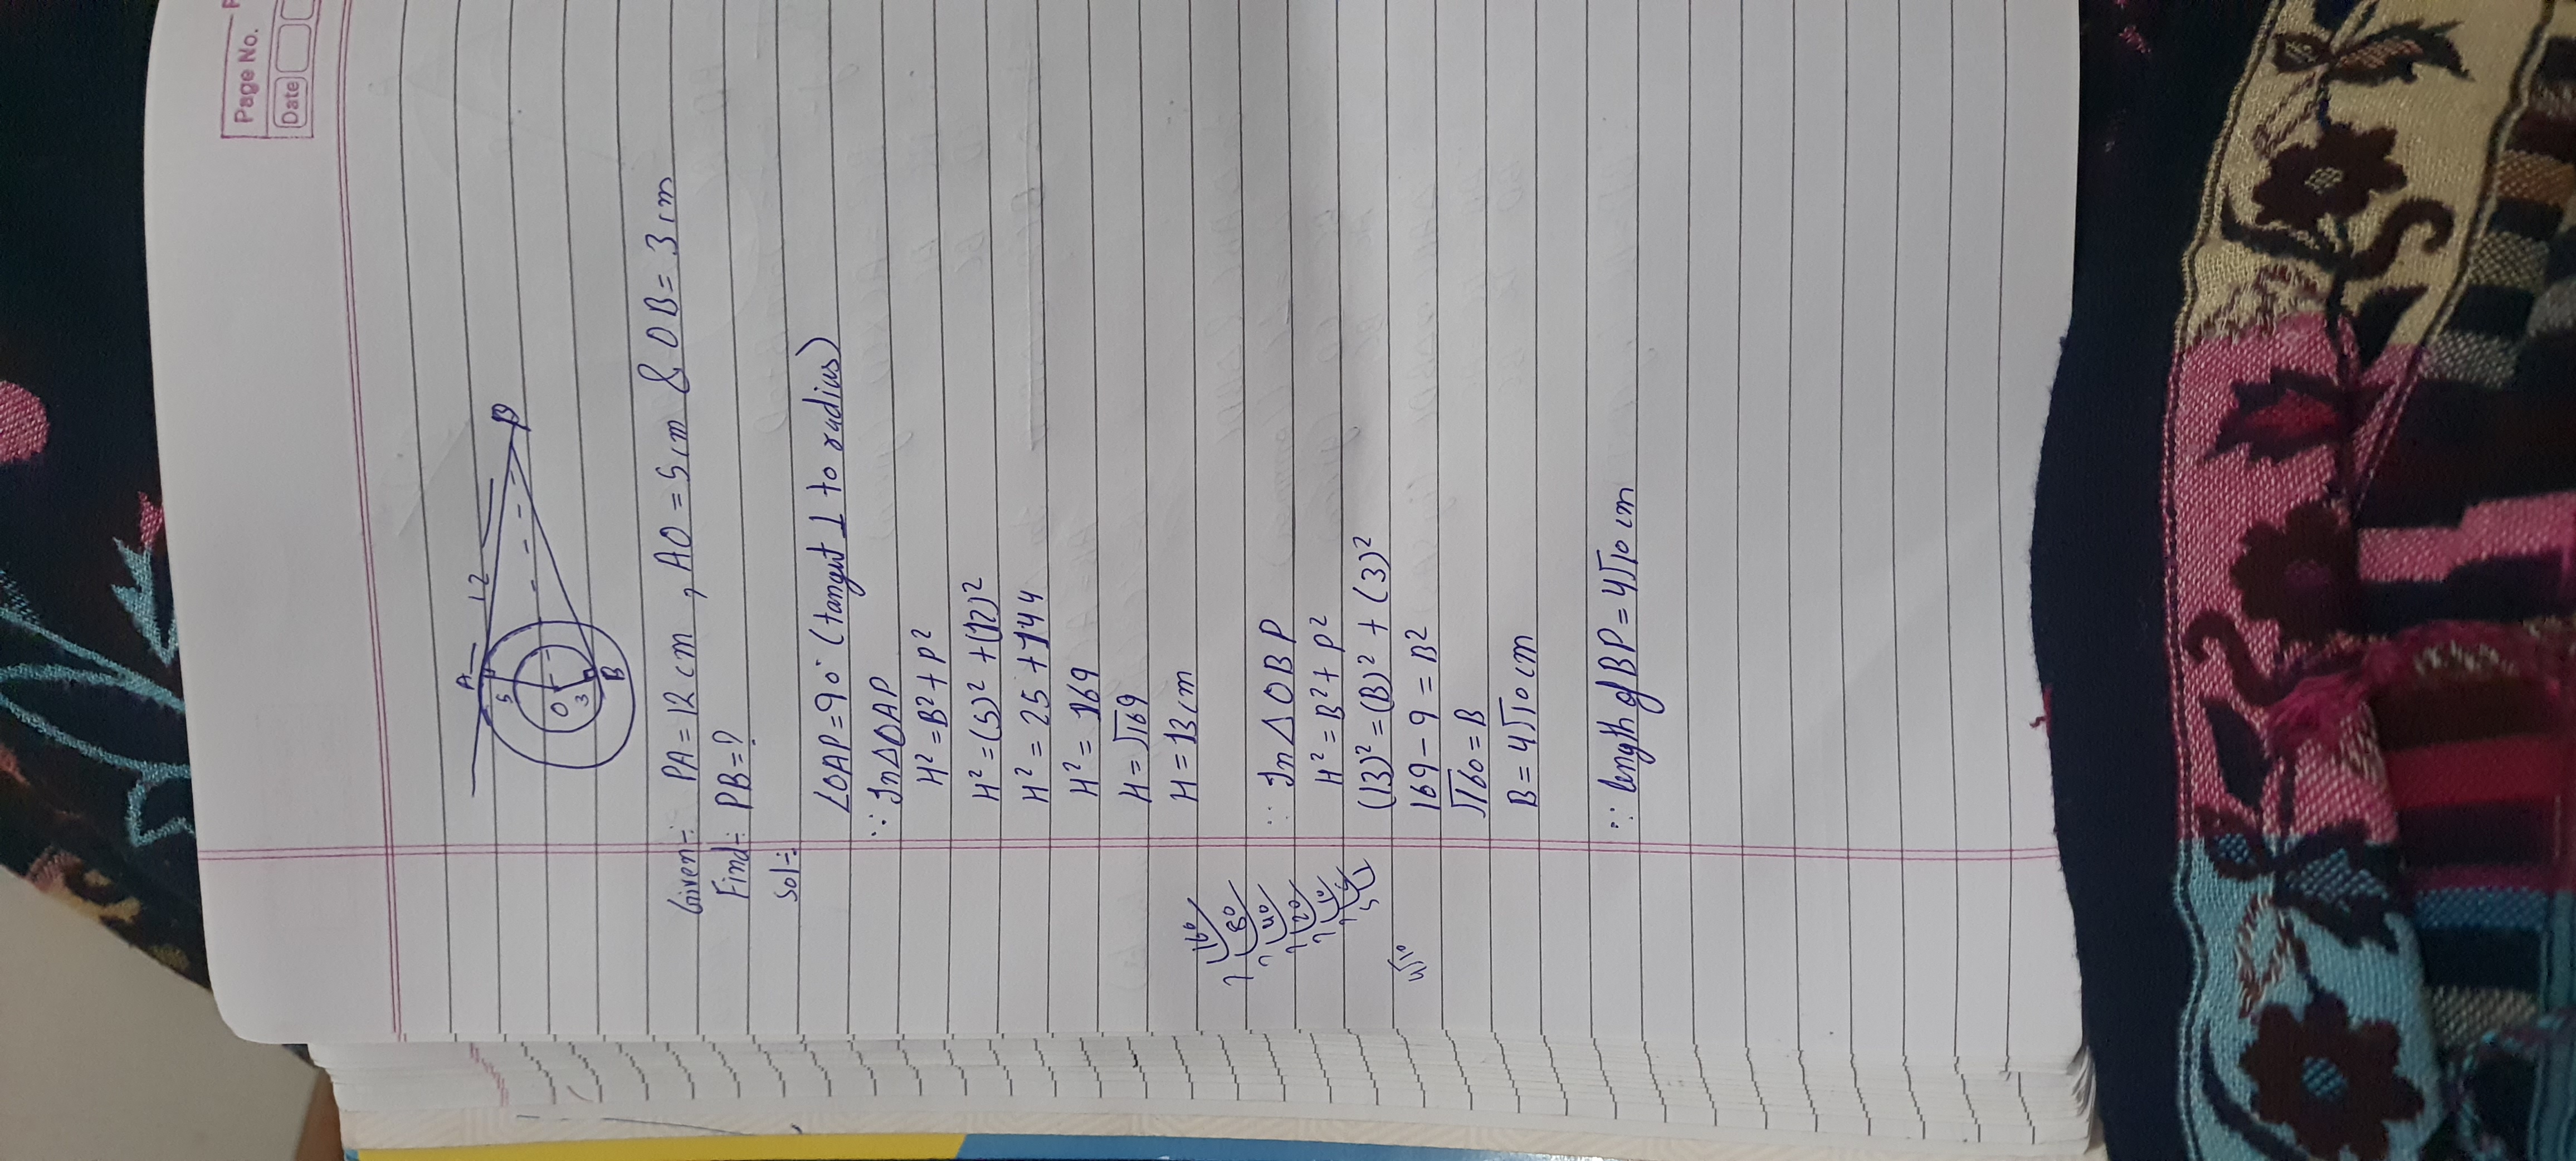 Page No.
Date
A
12
P
5
O
3
B
Given:- PA = 12 cm , AO = 5 cm & OB = 3 cm
Find:- PB = ?
Sol:-
∠OAP = 90° (tangent ⊥ to radius)
∵ In △OAP
H² = B² + P²
H² = (5)² + (12)²
H² = 25 + 144
H² = 169
H = √169
H = 13 cm
∵ In △ OBP
H² = B² + P²
(13)² = (B)² + (3)²
169 - 9 = B²
√160 = B
B = 4√10 cm
∵ length of BP = 4√10 cm
2 160
2 80
2 40
2 20
4√10